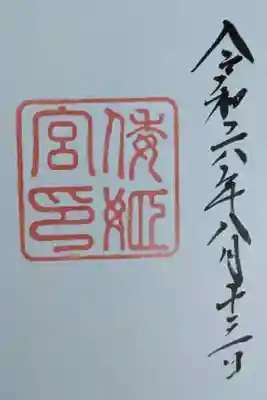 令和六年八月十三日
倭姫
宮印